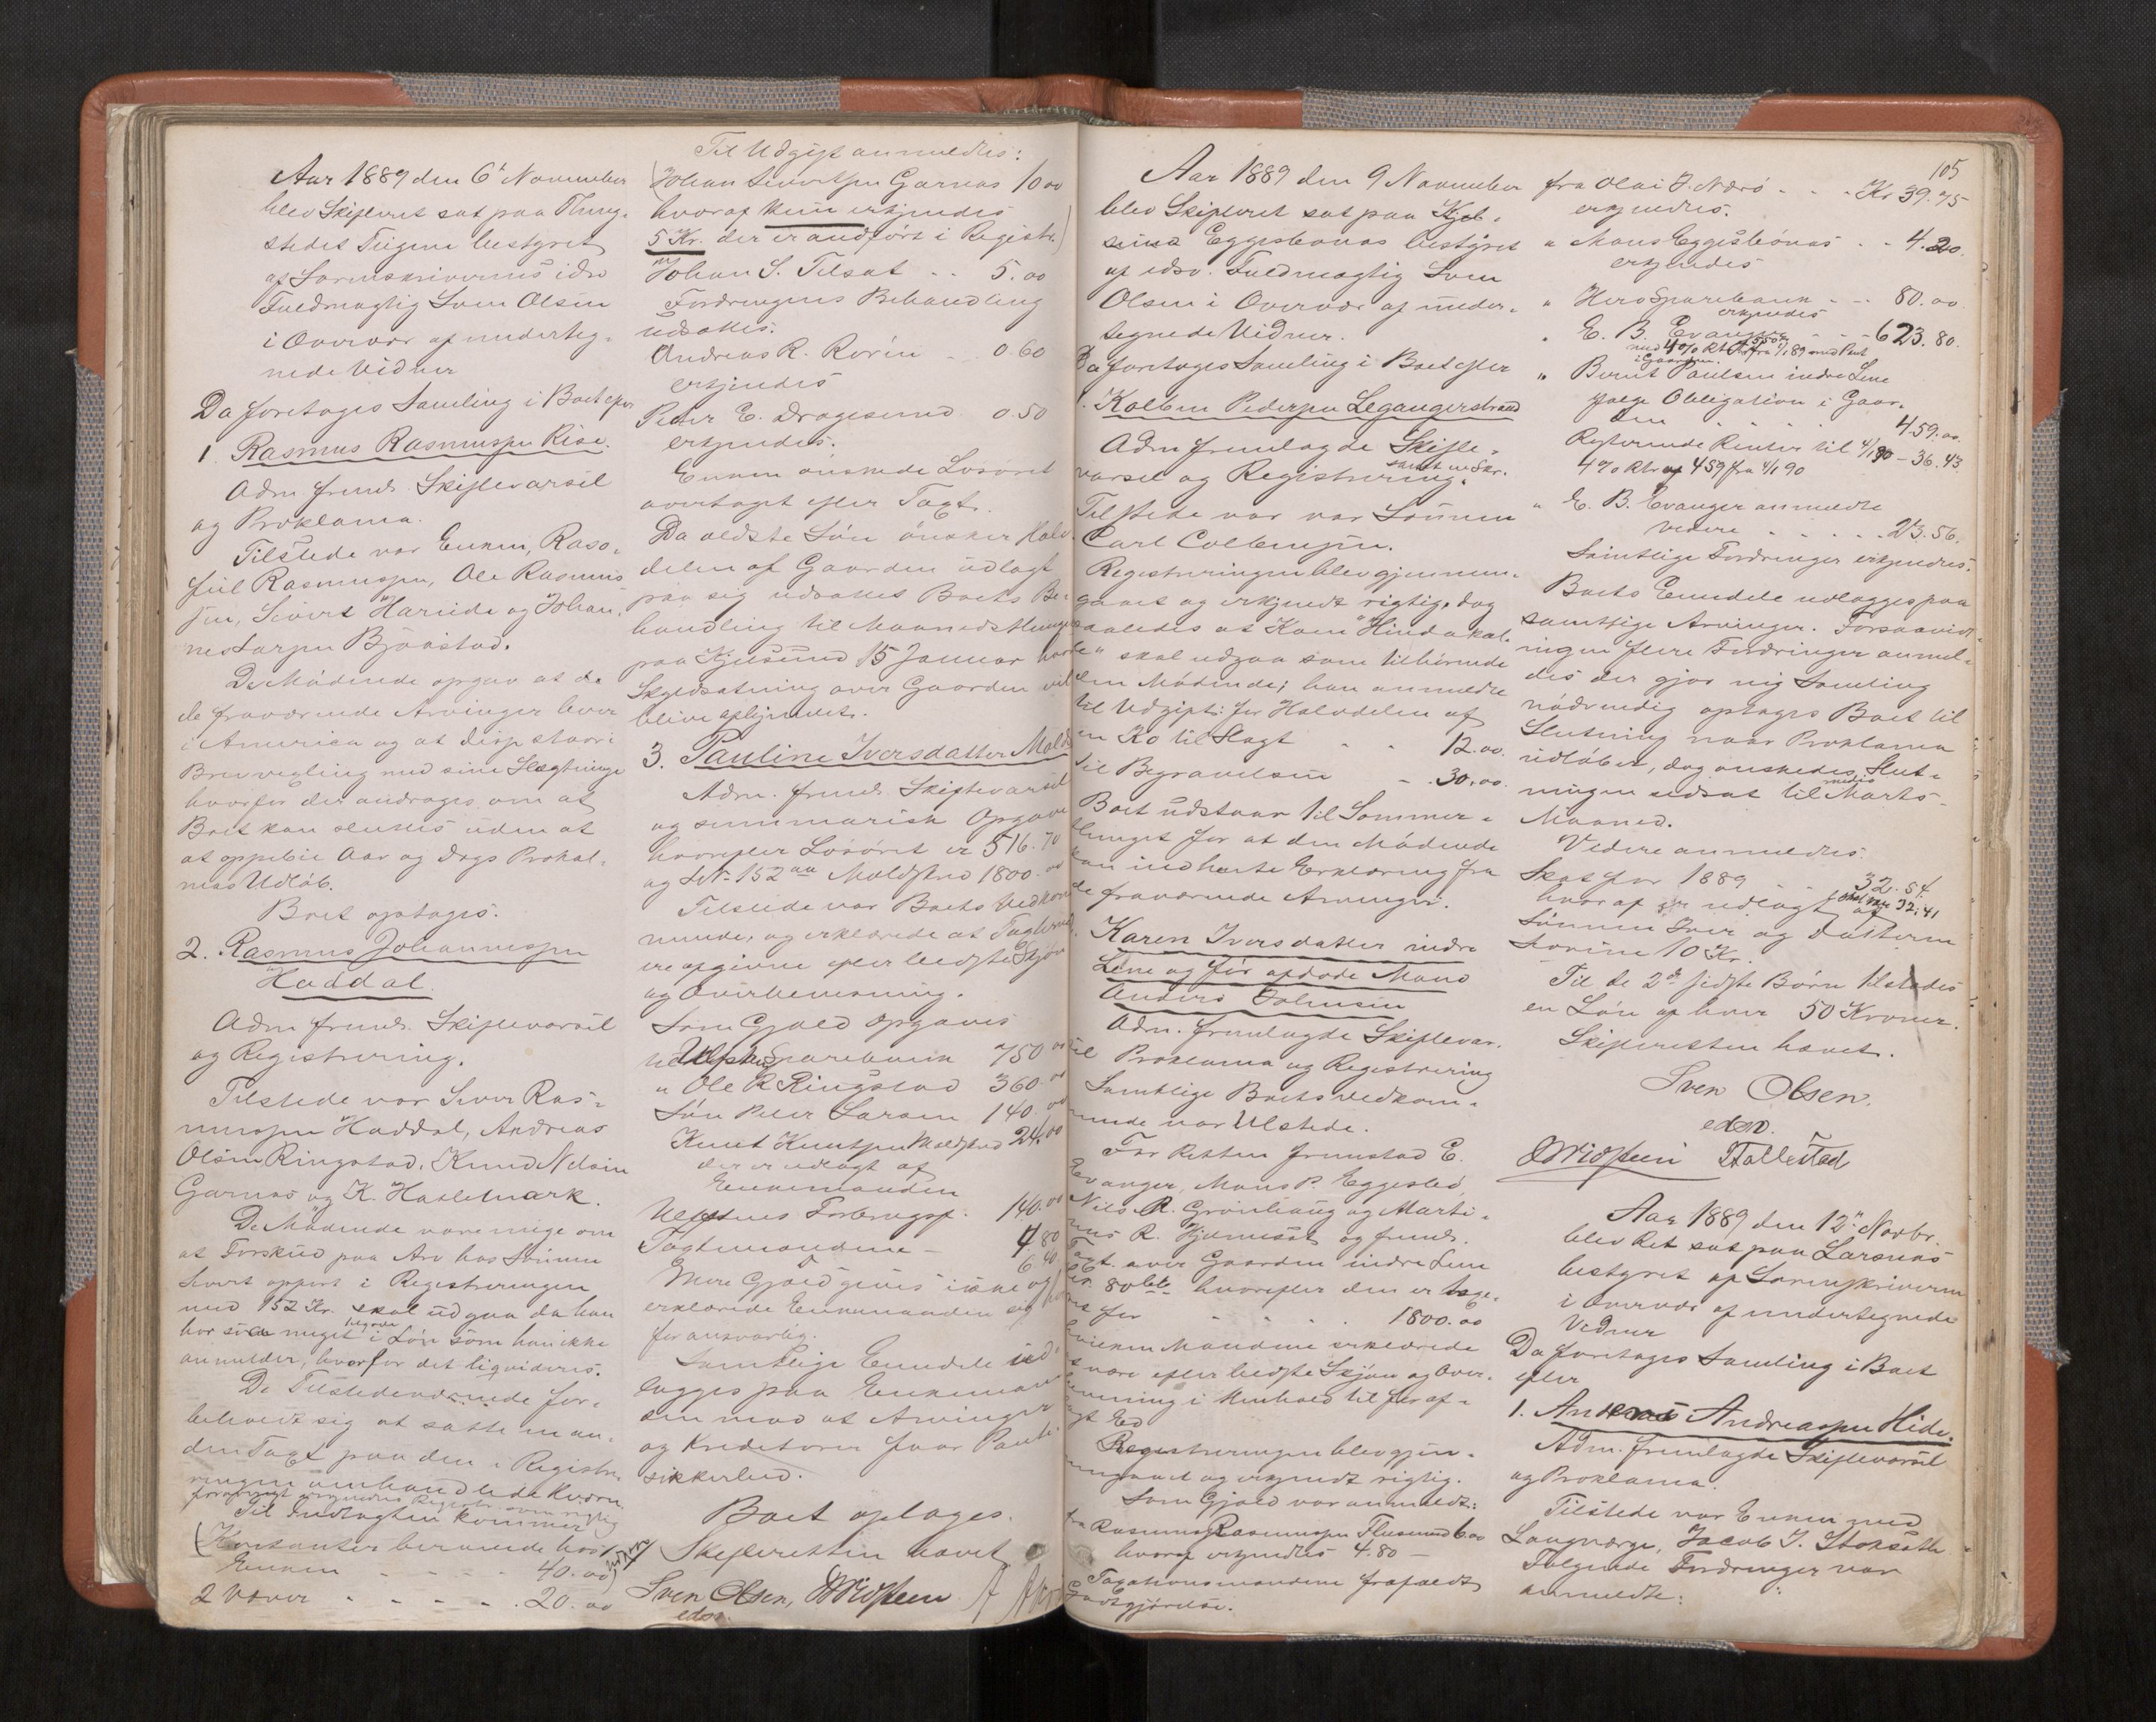 Aar 1889 den 6t November
blev Skifteret sat paa Thing-
stedet Teigene bestyret
af Sorenskriverens edsv
Fuldmægtig Sven Olsen
i Overvær af underteg-
nede Vidner
Da foretoges Samling i Boet efter
1. Rasmus Rasmussen Rise.
Adm freml. Skiftevarsel
og Proklama.
Tilstede var Enken, Raso-
Rasmussen, Ole Rasmus
sen, Sivert Hareide og Johan-
nes Larsen Bjåstad.
De Mødende opgav at de
de fraværende Arvinger lever
i America og at disse staar i
Brevvexling med sine Slægtninge
hvorfor der androges om at
Boet kan sluttes uden at
at oppebie Aar og Dags Proklamas
mas Udløb.
Boet optoges.
2. Rasmus Johannessen
Haddal.
Adm freml. Skiftevarsel
og Registrering.
Tilstede var Sivert Ras-
mussen Haddal, Andreas
Olsen Ringstad, Knud Nelsen
Garnæs og K. Haslemark.
De Mødende vare enige om
at Forskud paa Arv hos Sønnen
Sivert opført i Registreringen
med 152 Kr. skal udgaa da han
har saa meget i Løn som han ikke
anmelder, hvorfor det liqvideres.
De Tilstedeværende for-
beholdt sig at sætte en an-
den Taxt paa den i Registre-
ringen omhandlede Kværn
Til Indtægten kommer
(Kontanter beroende hos
Enken - - - - 40.00)
2 Væver - - - - 20.00
Til Udgift anmeldtes:
(Johan Sivertsen Garnæs 10.00
hvoraf kun erkjendes
5 Kr. der er andført i Registr.)
Johan S. Tilsæt - - 5.00
Fordringens Behandling
udsattes.
Andreas R. Rovin - 0.60
erkjendes
Peder E. Dragesund 0.50
erkjendes.
Enken ønskede Løsøret
overtaget efter Taxt.
Da ældste Søn ønsker Halv-
delen af Gaarden udlagt
paa sig udsattes Boets Be-
handling til Maanedsthinget
paa Kjelsund 15 Januar
Skyldsætning over Gaarden vil
blive afhjemlet.
3. Pauline Iversdatter Molds
Adm. freml. Skiftevarsel
og summarisk Opgave
hvorefter Løsøret er 516.70
og L.N. 152 Moldskred 1800.00
Tilstede var Boets Vedkom
mende, og erklærede at Taxterne
ere afgivne efter bedste Skjøn
og Overbevisning.
Som Gjæld opgaves
til Ulstens Sparebank 750.00
" Ole R Ringstad 360.00
Søn Peter Larsen 140.00
Knut Knutsen Moldskred 24.00
der er udlagt af
Enkemanden
Ulstens Forbrugsf. 140.00
Taxtmændene - 4.80
6.40
Mere Gjæld gives ikke og
erklærede Enkemanden sig
for ansvarlig.
Samtlige Eiendele ud-
lægges paa Enkeman-
den mod at Arvinger
og Kreditorer faar Pante-
sikkerhed.
Boet optoges.
Skifteretten hævet
Sven Olsen,
edsv.
105
Aar 1889 den 9 November
blev Skifteret sat paa
Eggesbønæs bestyret
af edsv. Fuldmægtig Sven
Olsen i Overvær af under-
tegnede Vidner.
Da foretoges Samling i Boet efter
1. Kolben Pedersen Legangerstrand
Adm fremlagde Skifte-
varsel og Registrering.
Tilstede var var Sønnen
Carl Colbensen.
Registreringen blev gjennem-
gaaet og erkjendt rigtig, dog
saaledes at Koen "Hindakal-
ve" skal udgaa som tilhørende
den Mødende; han anmeldte
til Udgift: for Halvdelen af
en Ko til Slagt - - 12.00.
til Begravelsen - 30.00.
Boet udstaar til Sommer-
thinget for at den Mødende
kan indhente Erklæring fra
de fraværende Arvinger.
Karen Iversdatter indre
Lene og før afdøde Mand
Anders Johnsen
Adm. fremlagde Skiftevar-
sel Proklama og Registrering
Samtlige Boets Vedkom-
mende var tilstede.
For Retten fremstod E.
Evanger, Mons P. Eggesbø
Nils R. Grønhaug og Marti-
nus R. Hjelmesæt og freml.
Taxt over Gaarden indre Lene
hvorefter den er tage-
ret for - - - 1800.00
hvilken Mændene erklærede
at være efter bedste Skjøn og Over-
bevisning i Henhold til før af-
lagt Ed
Registreringen blev gjen-
nemgaaet og erkjendt rigtig.
Som Gjæld var anmeldt:
fra Rasmus Rasmussen Flusund 6.00
hvoraf erkjendtes 4.80 -
Taxationsmændene frafaldt
Godtgjørelse.
fra Olai J. Nærø - - - Kr 39.75
erkjendtes.
" Mons Eggesbønæs - - 4.20.
erkjendes
" Herø Sparebank - - 80.00
erkjendes
" E. B. Evanger - - 623.80.
" Bernt Paulsen indre Lene
ifølge Obligation i Gaar-
den - - - - 459.00.
Resterende Renter til 4/1 90 - 36.43
4% Rtr af 459 fra 4/1 90
" E. B. Evanger anmeldte
videre - - - - 23.56.
Samtlige Fordringer erkjendtes.
Boets Eiendele udlægges paa
samtlige Arvinger. Forsaavidt
ingen flere Fordringer anmel-
des der gjør ny Samling
nødvendig optages Boet til
Slutning naar Proklama
udløber, dog ønskedes Slut-
ningen udsat til medio Marts-
Maaned.
Videre anmeldtes
Skat for 1889 - - 32.54
hvoraf er udlagt af
Sønnen Iver og Datteren
Severine 10 Kr.
Til de 2de sidste Børn tilstodes
en Løn af hver 50 Kroner.
Skifteretten hævet.
Sven Olsen.
edsv.
Aar 1889 den 12te Novbr.
blev Ret sat paa Larsnæs
bestyret af Sorenskriveren
i Overvær af undertegnede
Vidner
Da foretoges Samling i Boet
efter
1. Andreas Andreassen Hide.
Adm. fremlagde Skiftevarsel
og Proklama.
Tilstede var Enken med
Laugværge, Jacob J. Stoksæth
Følgende Fordringer var
anmeldte: